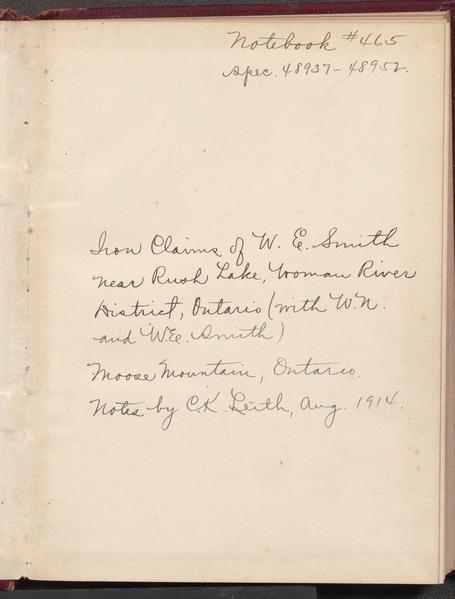 Notebook #465
Spec. 48937-48952.
Iron Claims of W. E. Smith
near Rush Lake, Woman River
District, Ontario (with W.N.
and W.E. Smith)
Moose Mountain, Ontario.
Notes by C.K. Leith, Aug. 1914.